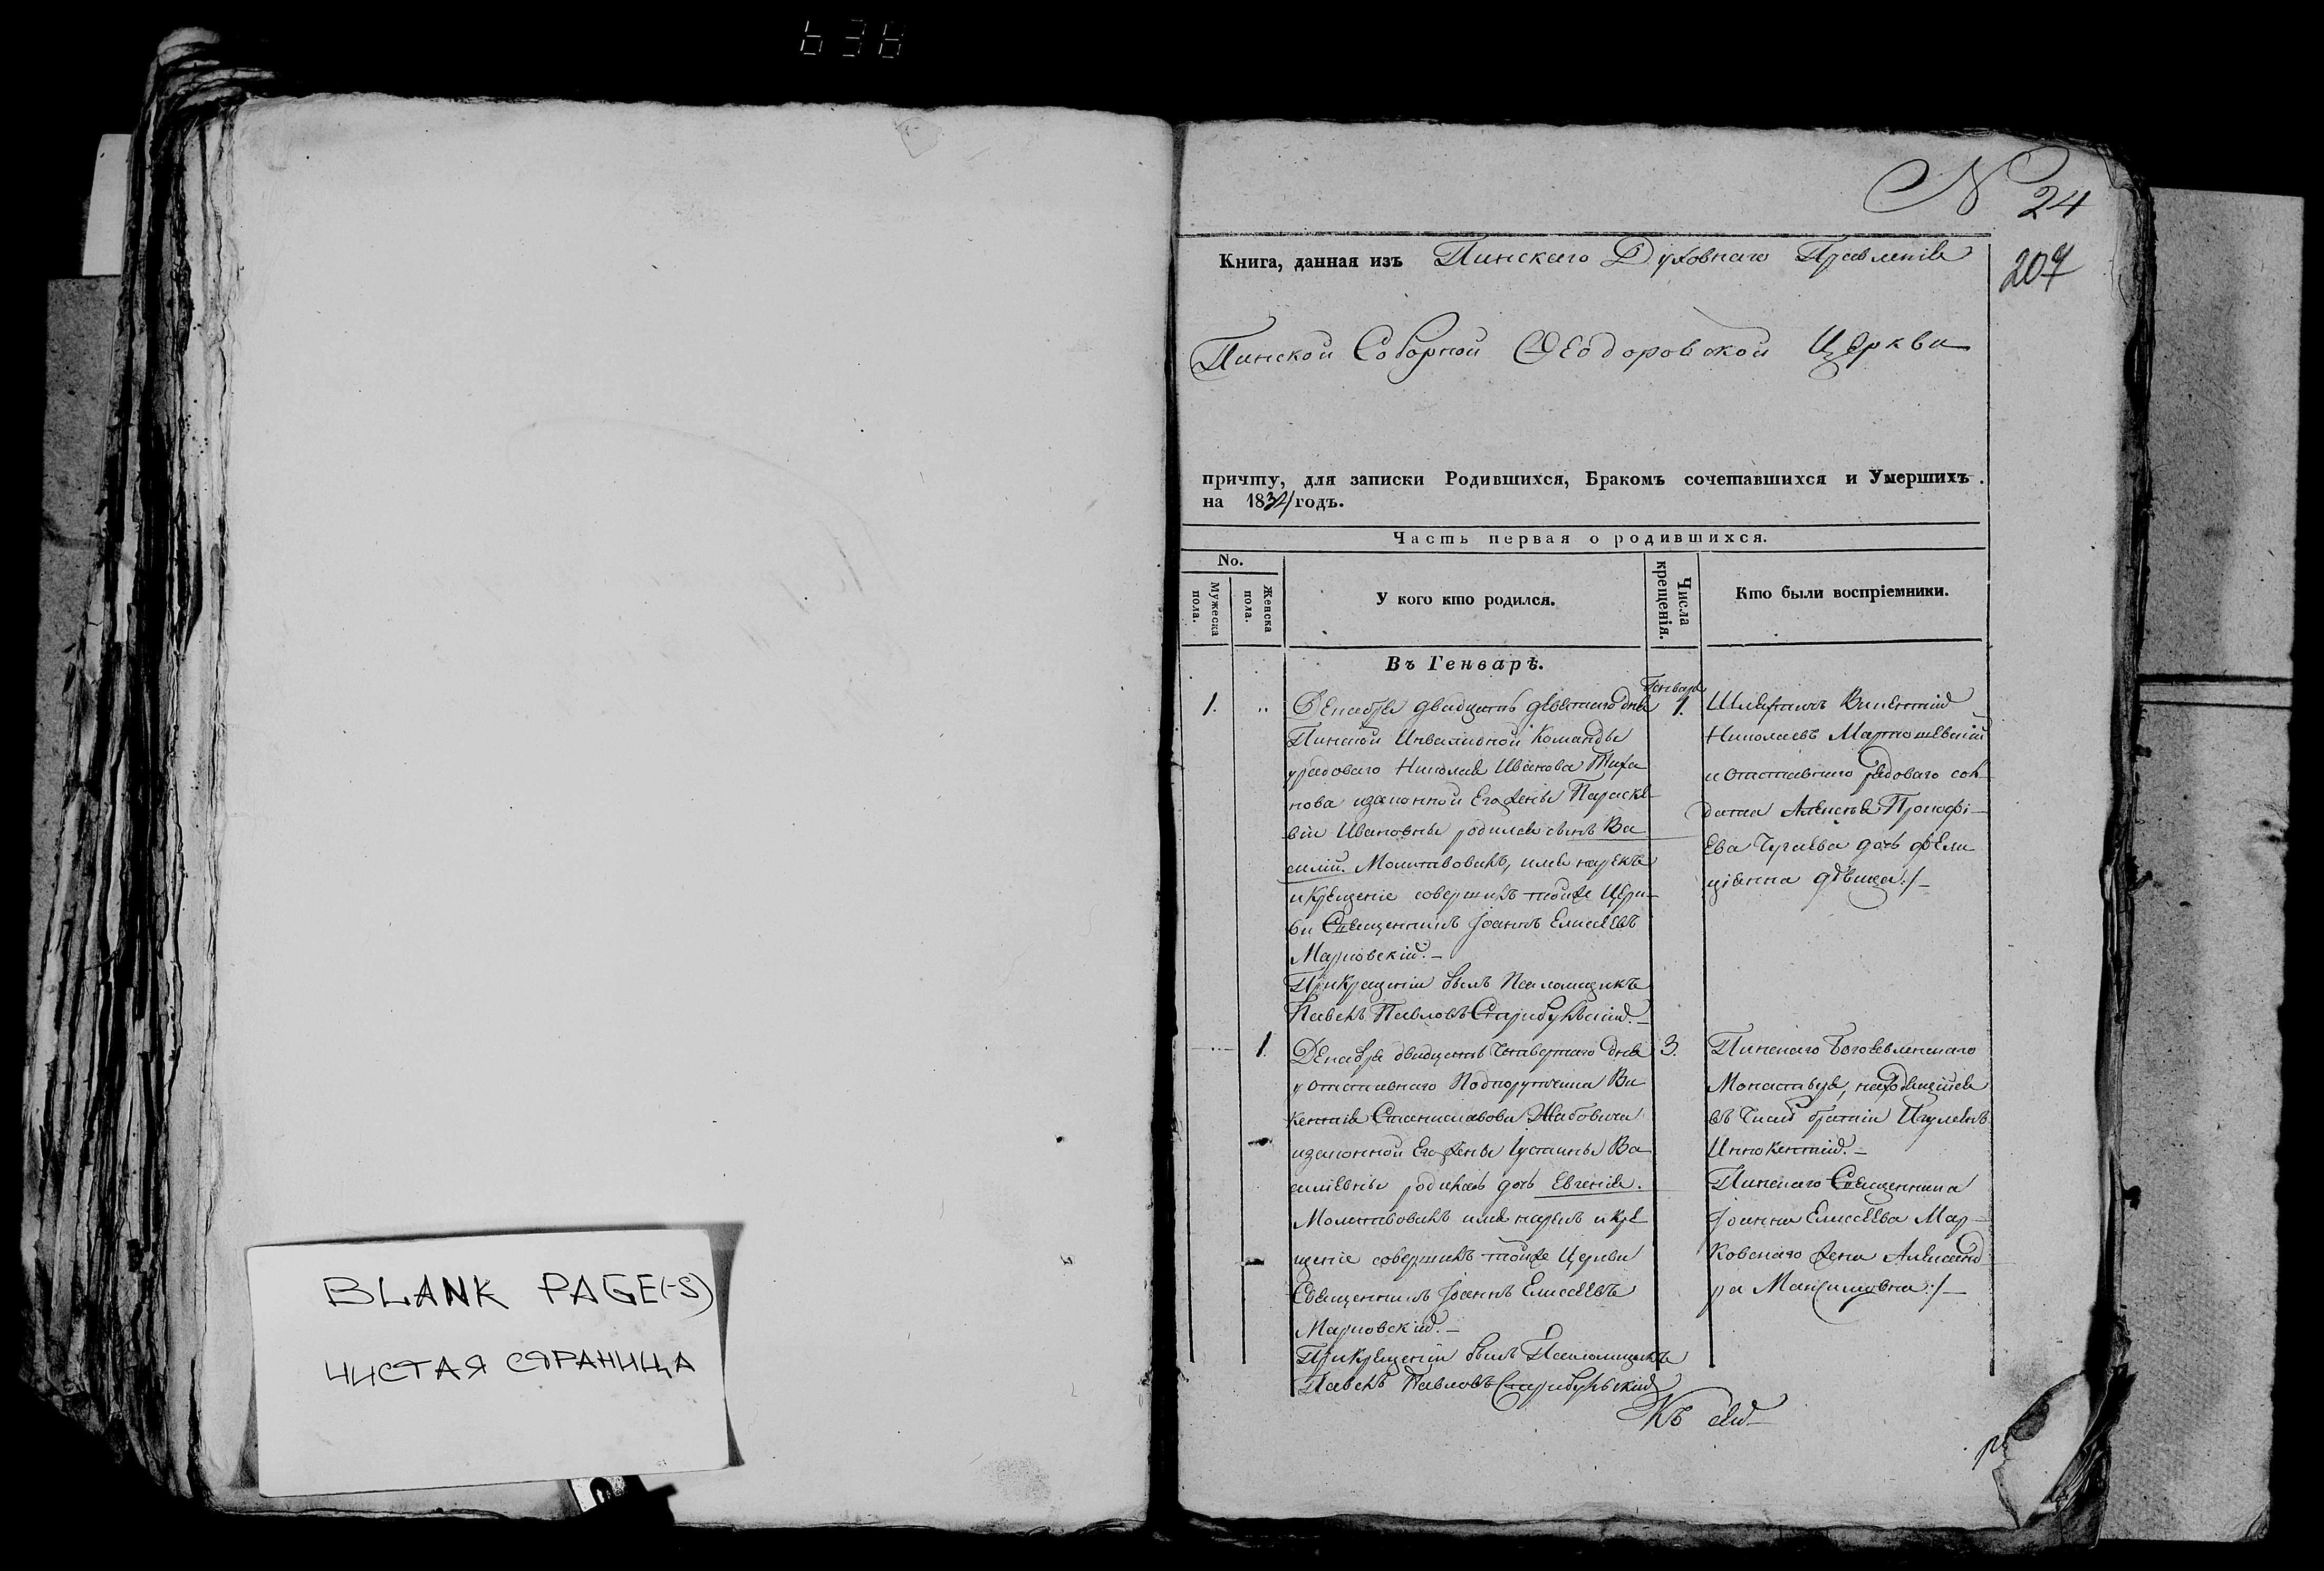 638
BLANK PAGE(-S)
ЧИСТАЯ СТРАНИЦА
N 24
207
Книга, данная изъ Пинскаго Духовнаго Правленія
Пинской Соборной Ѳеодоровской Церкви
причту, для записки Родившихся, Бракомъ сочетавшихся и Умершихъ.
на 1834 годъ.
Часть первая о родившихся.
No.
Мужеска пола.
Женска пола.
У кого кто родился.
Числа крещенія.
Кто были воспріемники.
Въ Генварѣ.
Генваря
1. „ Декабря двадцать девятаго дня 1.
Пинской Инвалидной Команды
урядоваго Николая Иванова Тиха
нова изаконной Егожены Параске
віи Ивановны родился сынъ Ва
силій. Молитвовалъ, имя нарекъ
и Крещеніе совершилъ тойже Церк
ви Священникъ Іоаннъ Елисѣевъ
Марковскій.
Прикрещеніи былъ Псаломщикъ
Павелъ Павловъ
Шляхтичь Викентій
Николаевъ
и Отставнаго рядоваго сол
дата Алексѣя Прокофі
ева дочь Фели
ціанна дѣвица./
1. Декабря двадцать Четвертаго дня 3.
у Отставнаго Подпоручика Ви
кентія Станиславова
изаконной Егожены Іустины Ва
силіевны родилась дочь Евгенія.
Молитвовалъ имя нарекъ и Кре
щеніе совершилъ тойже Церкви
Священникъ Іоаннъ Елисѣевъ
Марковскій.
Прикрещеніи былъ Псаломщикъ
Павелъ Павловъ
Пинскаго Богоявленскаго
Монастыря, находящійся
въ Числѣ братіи Игуменъ
Иннокентій.
Пинскаго Священника
Іоанна Елисѣева Мар
ковскаго жена Александ
ра Максимовна./